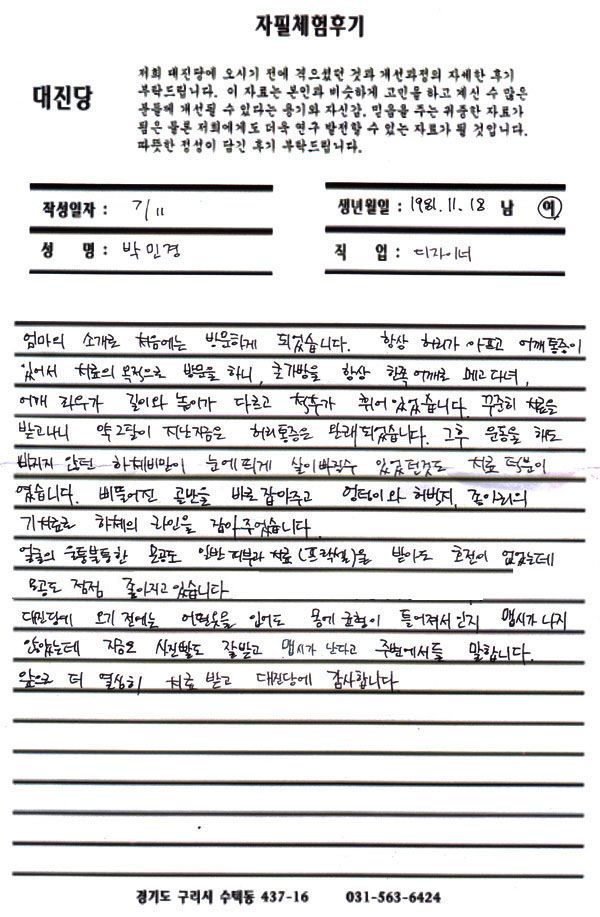 자필체험후기
대진당
저희 대진당에 오시기 전에 격으셨던 것과 개선과정의 자세한 후기
부탁드립니다. 이 자료는 본인과 비슷하게 고민을 하고 계신 수 많은
분들께 개선될 수 있다는 용기와 자신감, 믿음을 주는 귀중한 자료가
됨은 물론 저희에게도 더욱 연구 발전할 수 있는 자료가 될 것입니다.
따뜻한 정성이 담긴 후기 부탁드립니다.
작성일자 : 7/11
생년월일 : 1981.11.18 남 여
성 명 : 박민경
직 업 : 디자이너
엄마의 소개로 처음에는 방문하게 되었습니다. 항상 허리가 아프고 어깨통증이
있어서 치료의 목적으로 방문을 하니, 큰가방을 항상 한쪽 어깨로 메고다녀,
어깨 좌우가 길이와 높이가 다르고 척추가 휘어있었습니다. 꾸준히 치료를
받고나니 약2달이 지난지금은 허리통증은 완쾌되었습니다. 그후 운동을 해도
빠지지 않던 하체비만이 눈에띄게 살이빠질수 있었던것도 치료 덕분이
였습니다. 삐뚤어진 골반을 바로잡아주고 엉덩이와 허벅지, 종아리의
기치료로 하체의 라인을 잡아주었습니다.
얼굴의 울퉁불퉁한 모공도 일반 피부과 치료(프락셀)을 받아도 호전이 없었는데
모공도 점점 좁아지고있습니다
대진당에 오기 전에는 어떤옷을 입어도 몸에 균형이 틀어져서인지 맵시가 나지
않았는데 지금은 사진빨도 잘받고 맵시가 난다고 주변에서들 말합니다.
앞으로 더 열심히 치료 받고 대진당에 감사합니다
경기도 구리시 수택동 437-16 031-563-6424